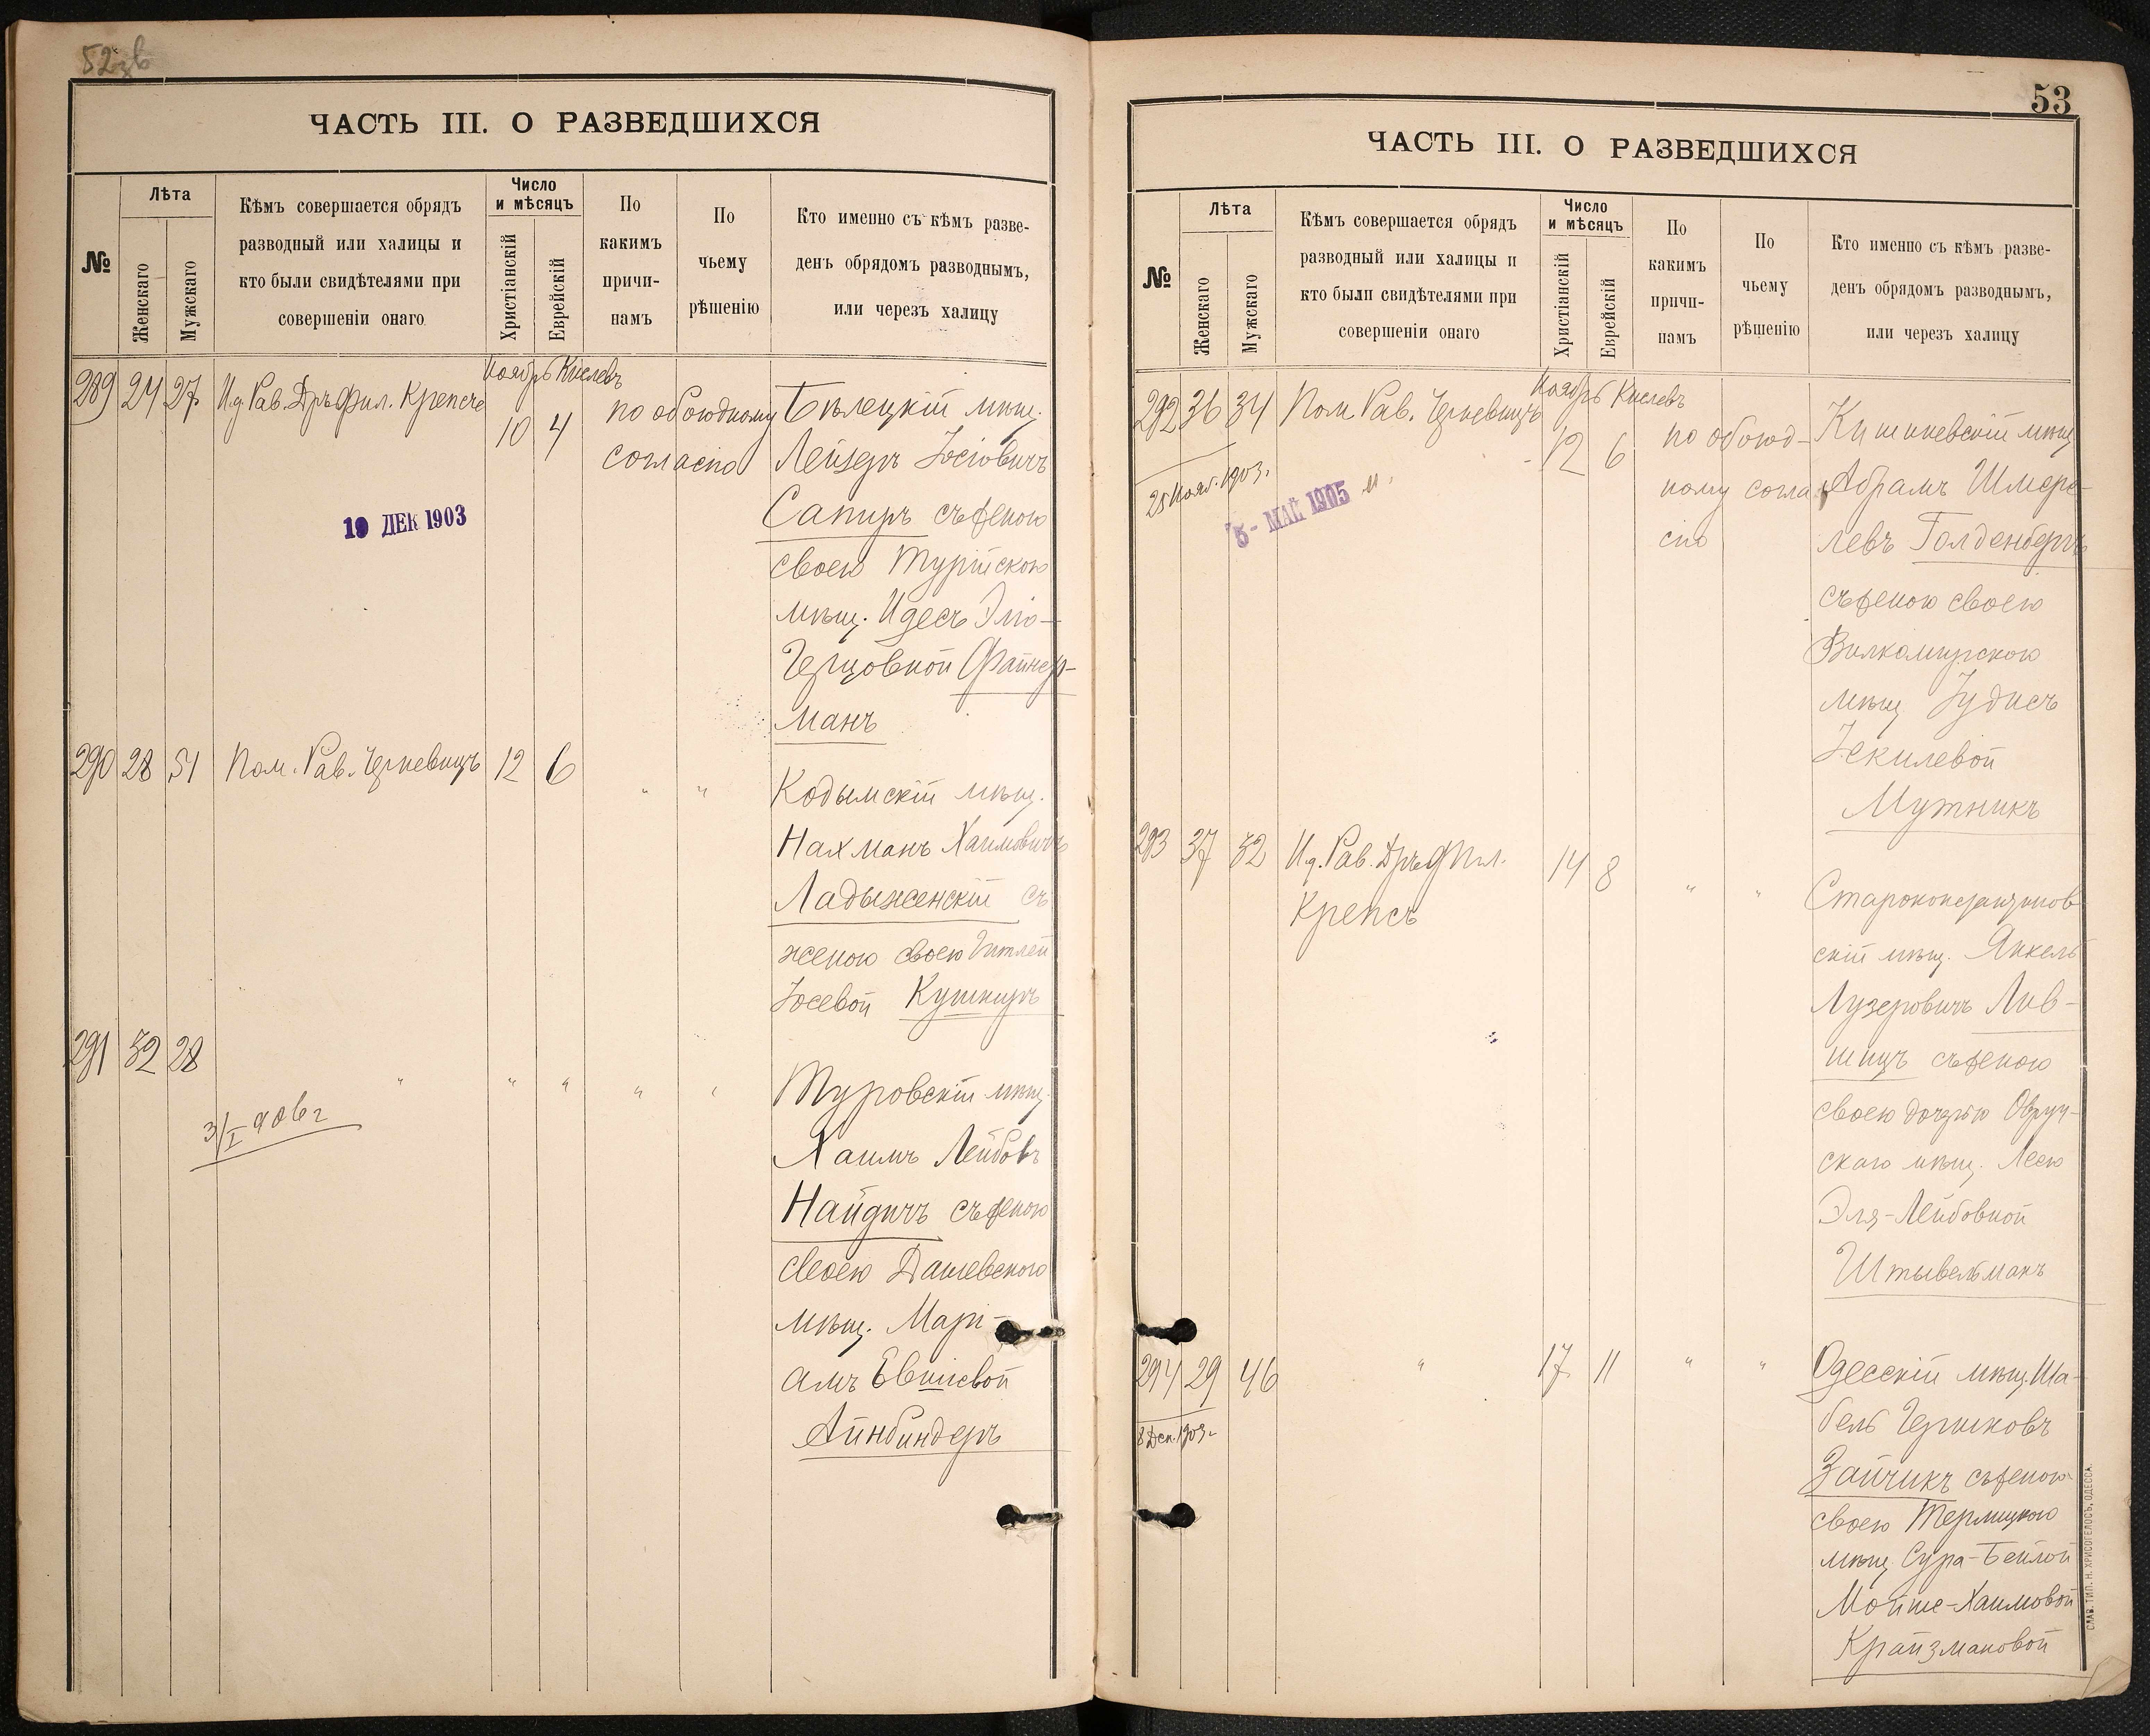 52
ЧАСТЬ III. О РАЗВЕДШИХСЯ
№
Лѣта
Женскаго
Мужскаго
Кѣмъ совершается обрядъ
разводный или халицы и
кто были свидѣтелями при
совершеніи онаго
Число
и мѣсяцъ
Христіанскій
Еврейскій
По
какимъ
причи-
намъ
По
чьему
рѣшенію
Кто именно съ кѣмъ разве-
денъ обрядомъ разводнымъ,
или черезъ халицу
Ноябрь Кислевъ
289 24 27 И.д. Рав. Дръ Фил. Крепсъ 10 4 по обоюдному
согласію
Бѣлецкій мѣщ.
Лейзеръ Іосіовичъ
Сапиръ съ женою
своею Турійскою
мѣщ. Идесъ Эліо-
Герцовной Файнер-
манъ
19 ДЕК 1903
290 28 51 Пом. Рав. Черневицъ 12 6 " "
Кодымскій мѣщ.
Нахманъ Хаимовичъ
Ладыженскій съ
женою своею Гитлей
Іосевой Кушниръ
291 32 28 " " " " "
3/I
Туровскій мѣщ.
Хаимъ Лейбовъ
Найдичъ съ женою
своею Дашевскою
мѣщ. Марі-
амъ Евшіевой
Айнбиндеръ
53
ЧАСТЬ III. О РАЗВЕДШИХСЯ
№
Лѣта
Женскаго
Мужскаго
Кѣмъ совершается обрядъ
разводный или халицы и
кто были свидѣтелями при
совершеніи онаго
Число
и мѣсяцъ
Христіанскій
Еврейскій
По
какимъ
причи-
намъ
По
чьему
рѣшенію
Кто именно съ кѣмъ разве-
денъ обрядомъ разводнымъ,
или черезъ халицу
Ноябрь Кислевъ
292 36 34 Пом. Рав. Черневицъ 12 6 по обоюд-
ному согла
сію
25 Нояб. 1903.
5 - МАЙ 1905
Кишиневскій мѣщ
Абрамъ Шмере-
левъ Голденбергъ
съ женою своею
Вилкомирскою
мѣщ Іудисъ
Іекилевой
Мутникъ
293 37 32 И.д. Рав. Дръ Фил.
Крепсъ
14 8 " "
Староконстантинов
скій мѣщ. Янкель
Лузеровичъ Лив-
шицъ съ женою
своею дочерью Овруч-
скаго мѣщ. Леею
Эля-Лейбовной
Штывельманъ
294 29 46 " 17 11 " "
8 Дек. 1903 г.
Одесскій мѣщ. Ша-
бель Гершковъ
Зайчикъ съ женою
своею Терлицкою
мѣщ Сура-Бейлой
Мойше-Хаимовой
Крайзмановой
СЛАВ. ТИП. Н. ХРИСОГЕЛОСЪ, ОДЕССА.